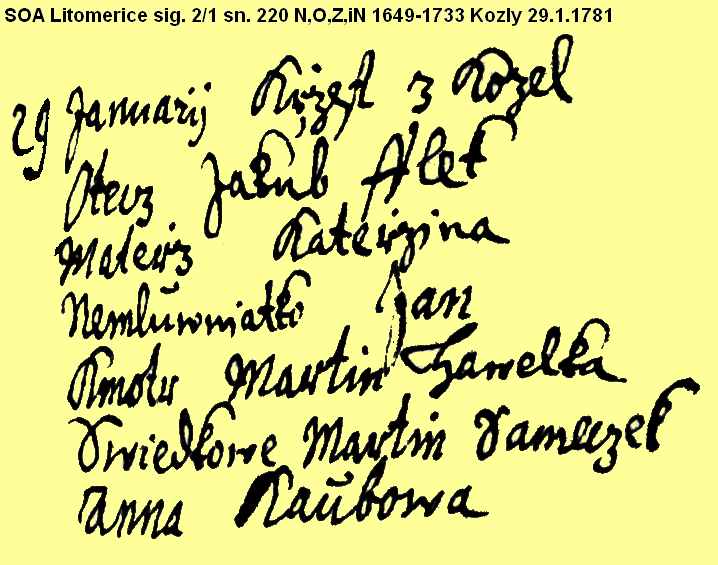 SOA Litomerice sig. 2/1 sn. 220 N,O,Z,iN 1649-1733 Kozly 29.1.1781
29 Januarij Krzest z Kozel
Otecz Jakub Alet
Materz Katerzina
Nemluwniatko Jan
Kmotr Martin Hawelka
Swiedkowe Martin Sameczek
Anna Kaubowa